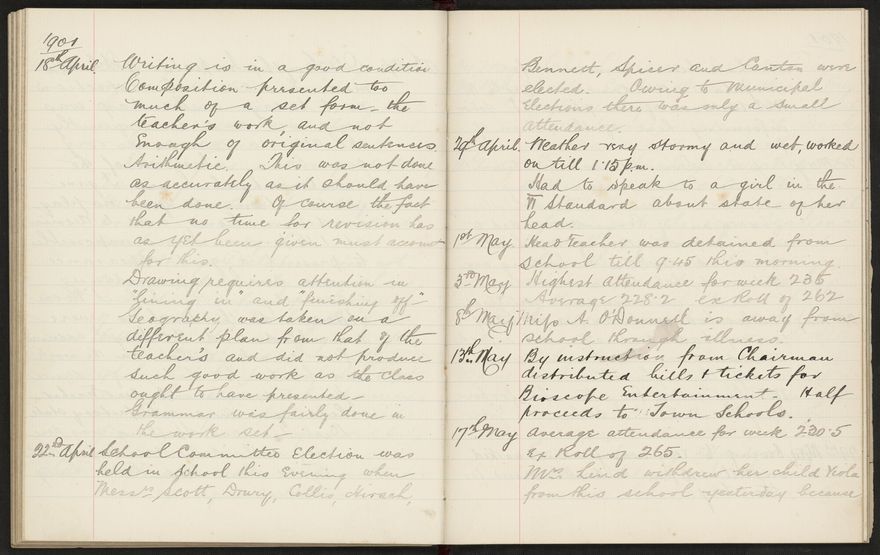 1901
18th April. Writing is in a good condition
Composition presented too
much of a set form - the
teacher's work and not
enough of original sentences
Arithmetic. This was not done
as accurately as it should have
been done. Of course the fact
that no time for revision has
as yet been given must account
for this.
Drawing requires attention in
"lining in" and "finishing off"
Geography was taken on a
different plan from that of the
teachers and did not produce
such good work as the class
ought to have presented -
Grammar was fairly done in
the work set -
22nd April School Committee Election was
held in school this evening when
Messrs Scott, Drury, Collis, Hirsch,
Bennett, Spicer and Canton were
elected. Owing to Municipal
Elections there was only a small
attendance.
29th April. Weather very stormy and wet, worked
on till 1.15 p.m.
Had to speak to a girl in the
VI Standard about state of her
head.
1st May Head Teacher was detained from
School till 9.45 this morning
3rd May Highest attendance for week 235
Average 228.2 ex Roll of 262
8th May A. O'Donnell is away from
school through illness.
13th May By instruction from Chairman
distributed bills & tickets for
Bioscope Entertainment - Half
proceeds to Town Schools.
17th May Average attendance for week 220.5
Ex Roll of 265.
Mrs. Lind withdrew her child Viola
from this school yesterday because